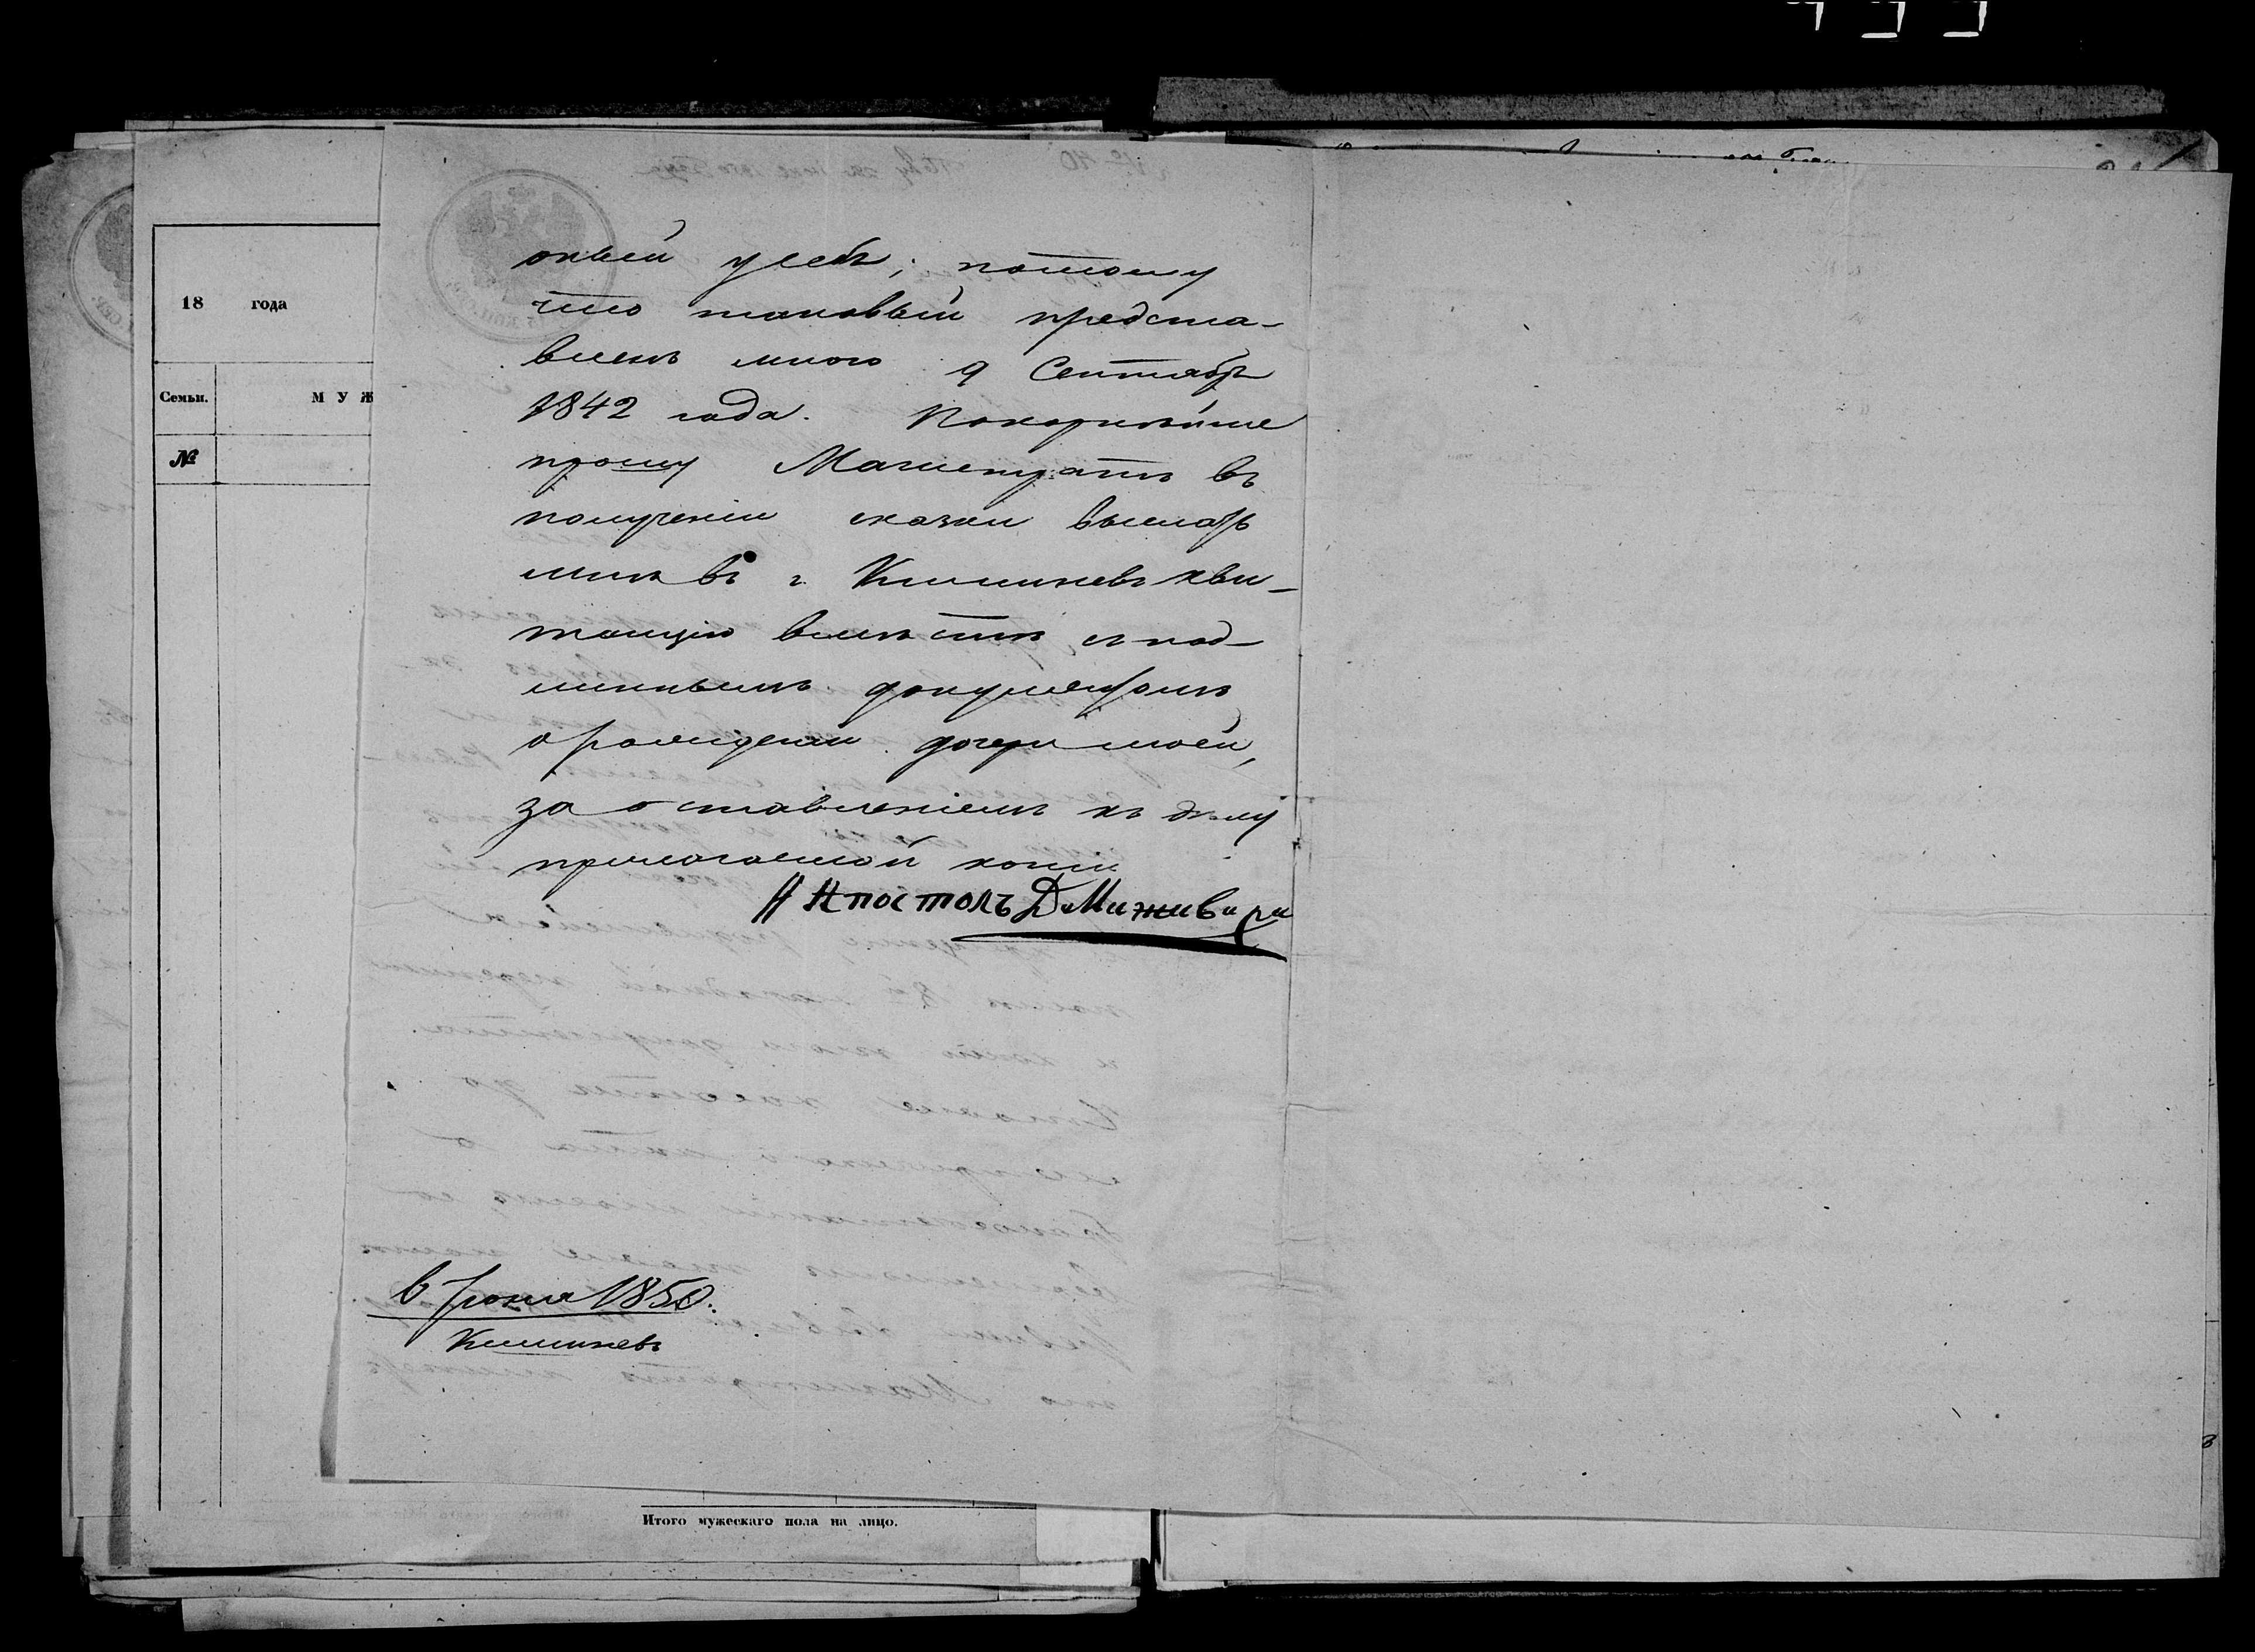 18 года
Семьи.
М У Ж
№
оный у себя; потому
что таковый предста-
вленъ мною 9 Сентября
1842 года. Покорнѣйше
прошу Магистратъ въ
полученіи сказки выслать
мнѣ въ г. Кишиневъ кви-
танцію вмѣстѣ съ под-
линнымъ документомъ
о рожденіи дочери моей,
за оставленіемъ къ дѣлу
прилагаемой копіи
Апостолъ Д. Миживири
6 Іюня 1850.
Кишиневъ
Итого мужескаго пола на лицо.